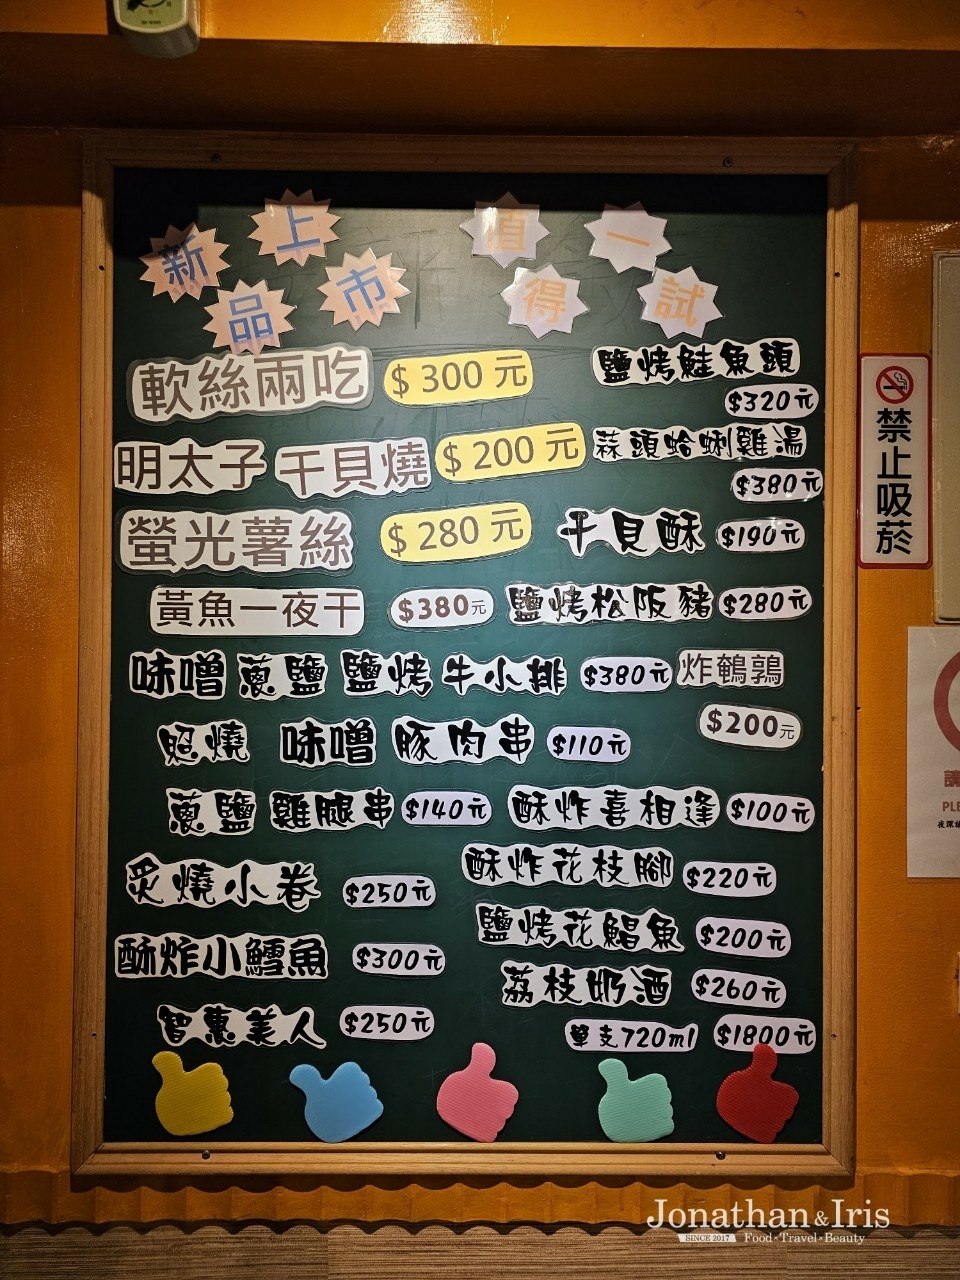 新品上市
值得一試
軟絲兩吃 $300元
鹽烤鮭魚頭 $320元
明太子 干貝燒 $200元
蒜頭蛤蜊雞湯 $380元
螢光薯絲 $280元
干貝酥 $190元
黃魚一夜干 $380元
鹽烤松阪豬 $280元
味噌 蔥鹽 鹽烤 牛小排 $380元
炸鵪鶉 $200元
照燒 味噌 豚肉串 $110元
蔥鹽 雞腿串 $140元
酥炸喜相逢 $100元
炙燒小卷 $250元
酥炸花枝腳 $220元
鹽烤花鯧魚 $200元
酥炸小鱈魚 $300元
荔枝奶酒 $260元
智惠美人 $250元
單支720ml $1800元
禁止吸菸
Jonathan & Iris
SINCE 2017 Food·Travel·Beauty